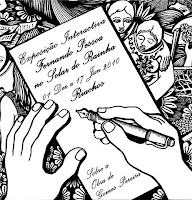 Exposição Interactiva
Fernando Pessoa
no Solar da Rainha
01 Dez a 17 Jan 2010
Riachos
Sobre a
Obra de
Gomes Pereira